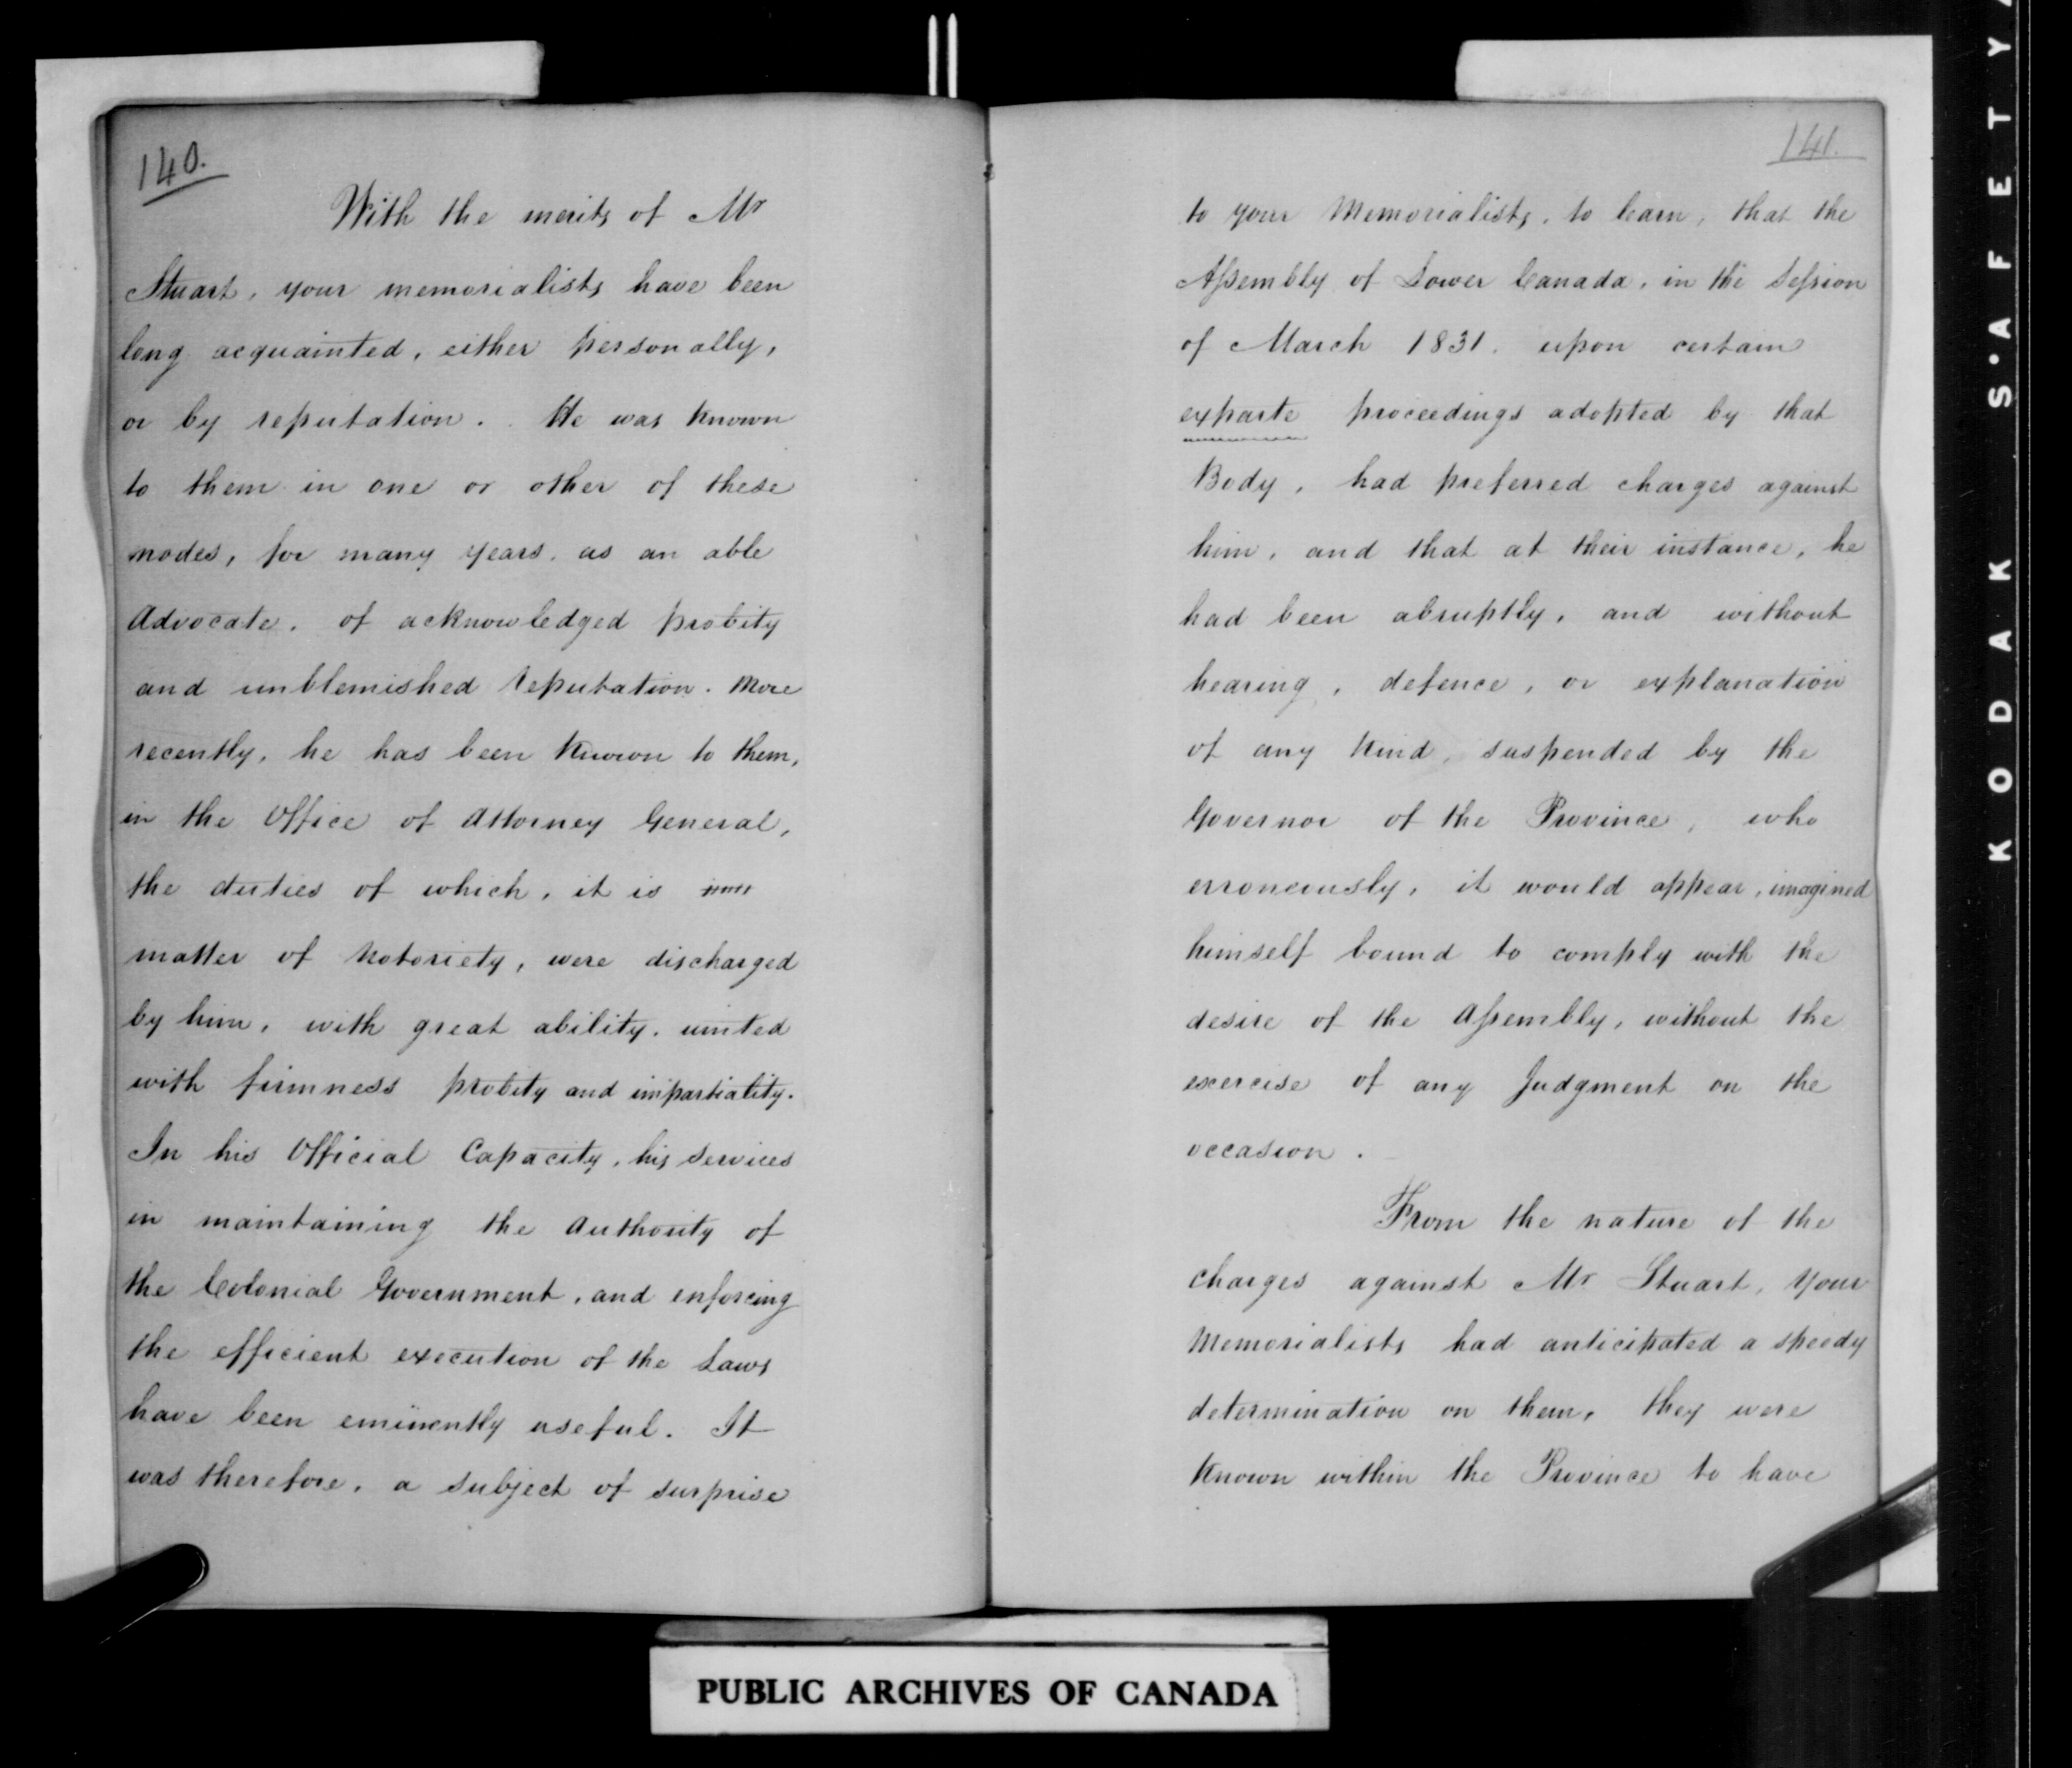 140.
With the merits of Mr
Stuart, your memorialists have been
long acquainted, either personally,
or by reputation. He was known
to them in one or other of these
modes, for many years, as an able
Advocate, of acknowledged probity
and unblemished reputation. More
recently, he has been known to them,
in the Office of Attorney General,
the duties of which, it is
matter of Notoriety, were discharged
by him, with great ability, united
with firmness probity and impartiality.
In his Official Capacity, his services
in maintaining the Authority of
the Colonial Government, and enforcing
the efficient execution of the Laws
have been eminently useful. It
was therefore, a subject of surprise
141.
to your Memorialists, to learn, that the
Assembly of Lower Canada, in the Session
of March 1831. upon certain
exparte proceedings adopted by that
Body, had preferred charges against
him, and that at their instance, he
had been abruptly, and without
hearing, defence, or explanation
of any Kind, suspended by the
Governor of the Province, who
erroneously, it would appear, imagined
himself bound to comply with the
desire of the Assembly, without the
exercise of any Judgment on the
occasion.
From the nature of the
charges against Mr Stuart, your
Memorialists had anticipated a speedy
determination on them, they were
Known within the Province to have
PUBLIC ARCHIVES OF CANADA
KODAK S'AFETY